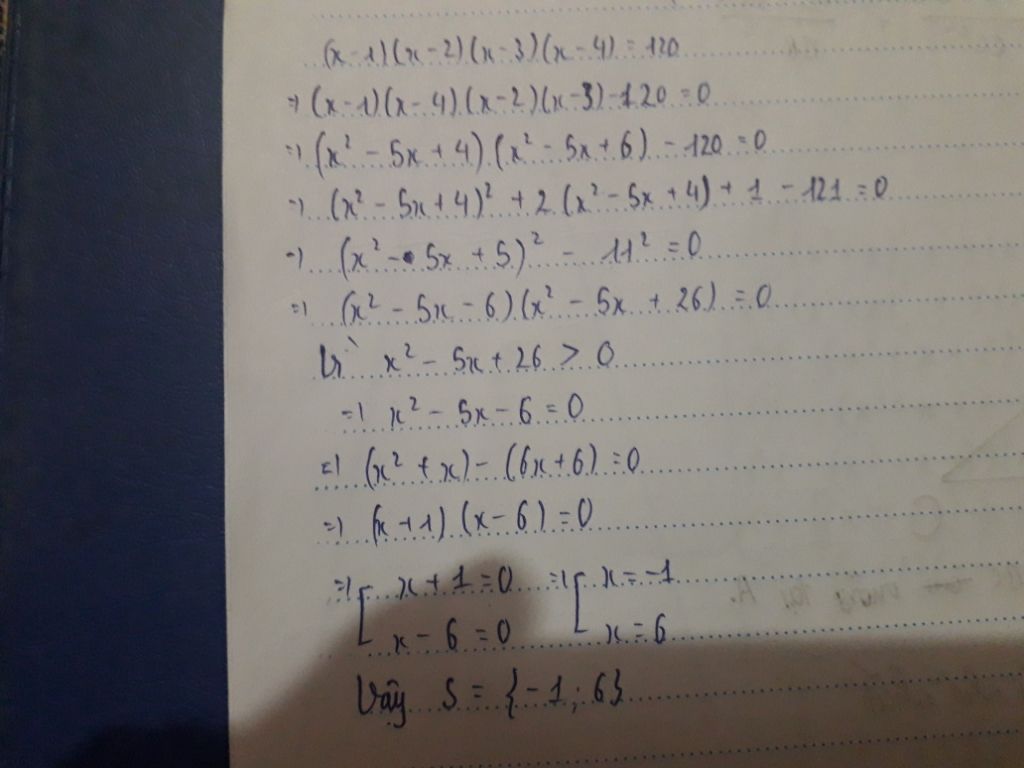 (x-1)(x-2)(x-3)(x-4) = 120
=> (x-1)(x-4)(x-2)(x-3)-120 = 0
=> (x² - 5x + 4)(x² - 5x + 6) - 120 = 0
=> (x² - 5x + 4)² + 2(x² - 5x + 4) + 1 - 121 = 0
=> (x² - 5x + 5)² - 11² = 0
=> (x² - 5x - 6)(x² - 5x + 26) = 0
Vì x² - 5x + 26 > 0
=> x² - 5x - 6 = 0
=> (x² + x) - (6x + 6) = 0
=> (x + 1)(x - 6) = 0
=> [ x + 1 = 0 => [ x = -1
x - 6 = 0 x = 6
Vậy S = {-1; 6}